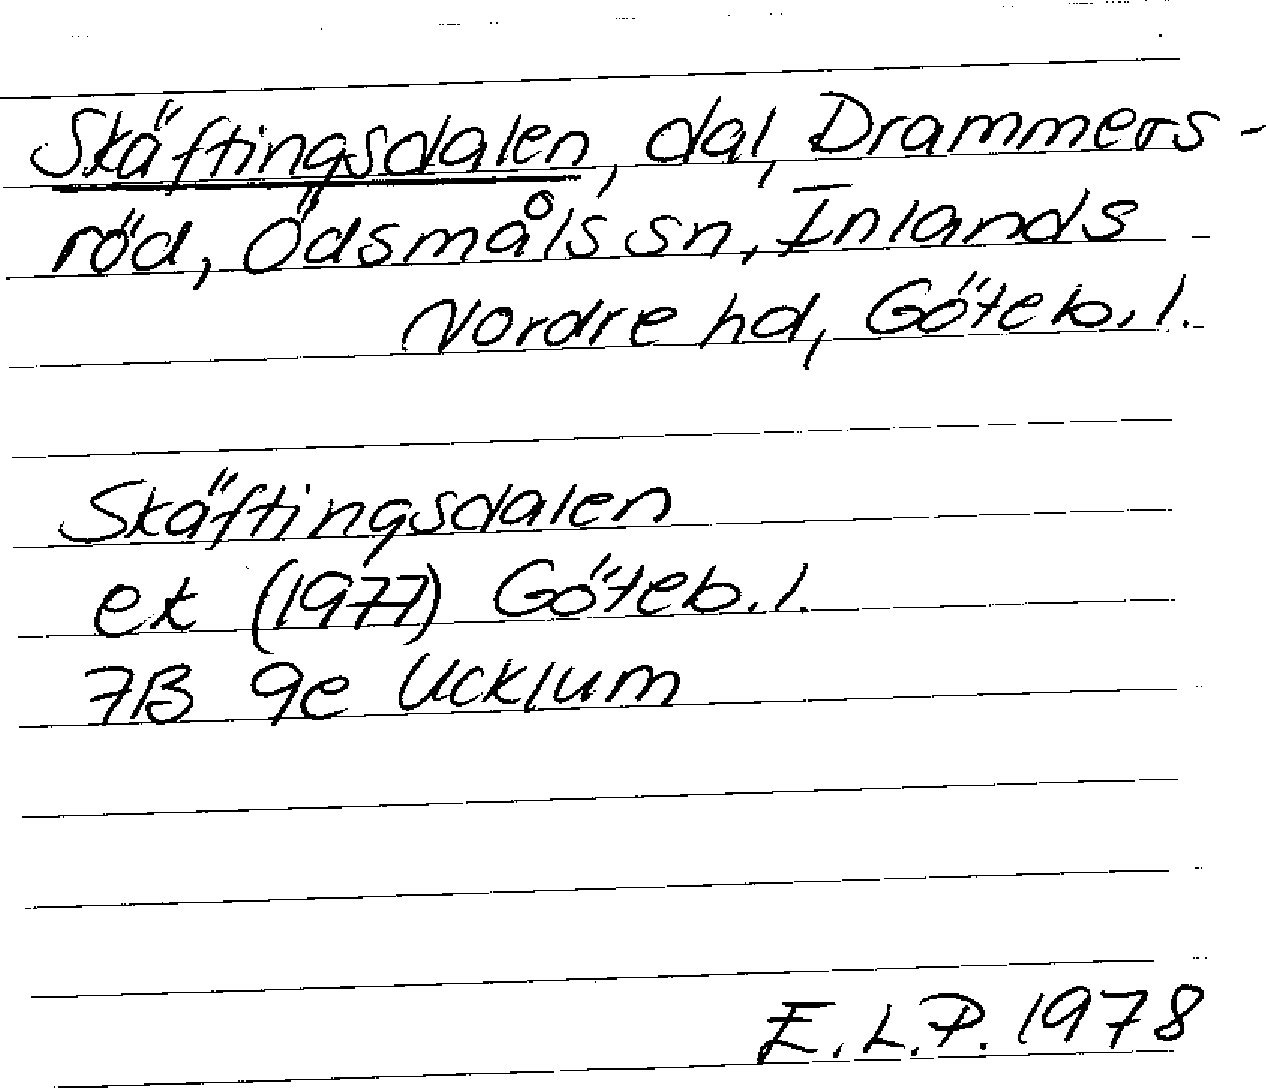 Skäftingsdalen, dal, Drammers-
röd, Ödsmåls sn, Inlands
Nordre hd, Göteb. l.
Skäftingsdalen
ek (1977) Göteb. l.
7B 9e Ucklum
E.L.P. 1978